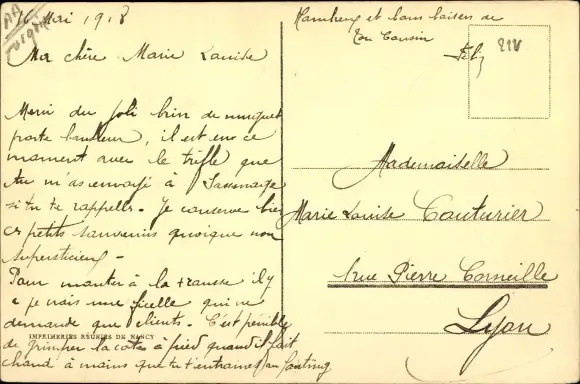 16 Mai 1918
Ma chère Marie Louise
Merci du joli brin de muguet
porte bonheur, il est en ce
moment avec le trèfle que
tu m'as envoyé à Sassenage
si tu te rappelles. Je conserve bien
ces petits souvenirs quoique non
superstitieux -
Pour monter à la
je vais une ficelle qui ne
demande que clients. C'est pénible
de grimper la côte à pied quand il fait
chaud à moins que tu t'entraines au footing
IMPRIMERIES RÉUNIES DE NANCY
et bons baisers de
Ton Cousin
Mademoiselle
Marie Louise Couturier
1 rue Pierre Corneille
Lyon